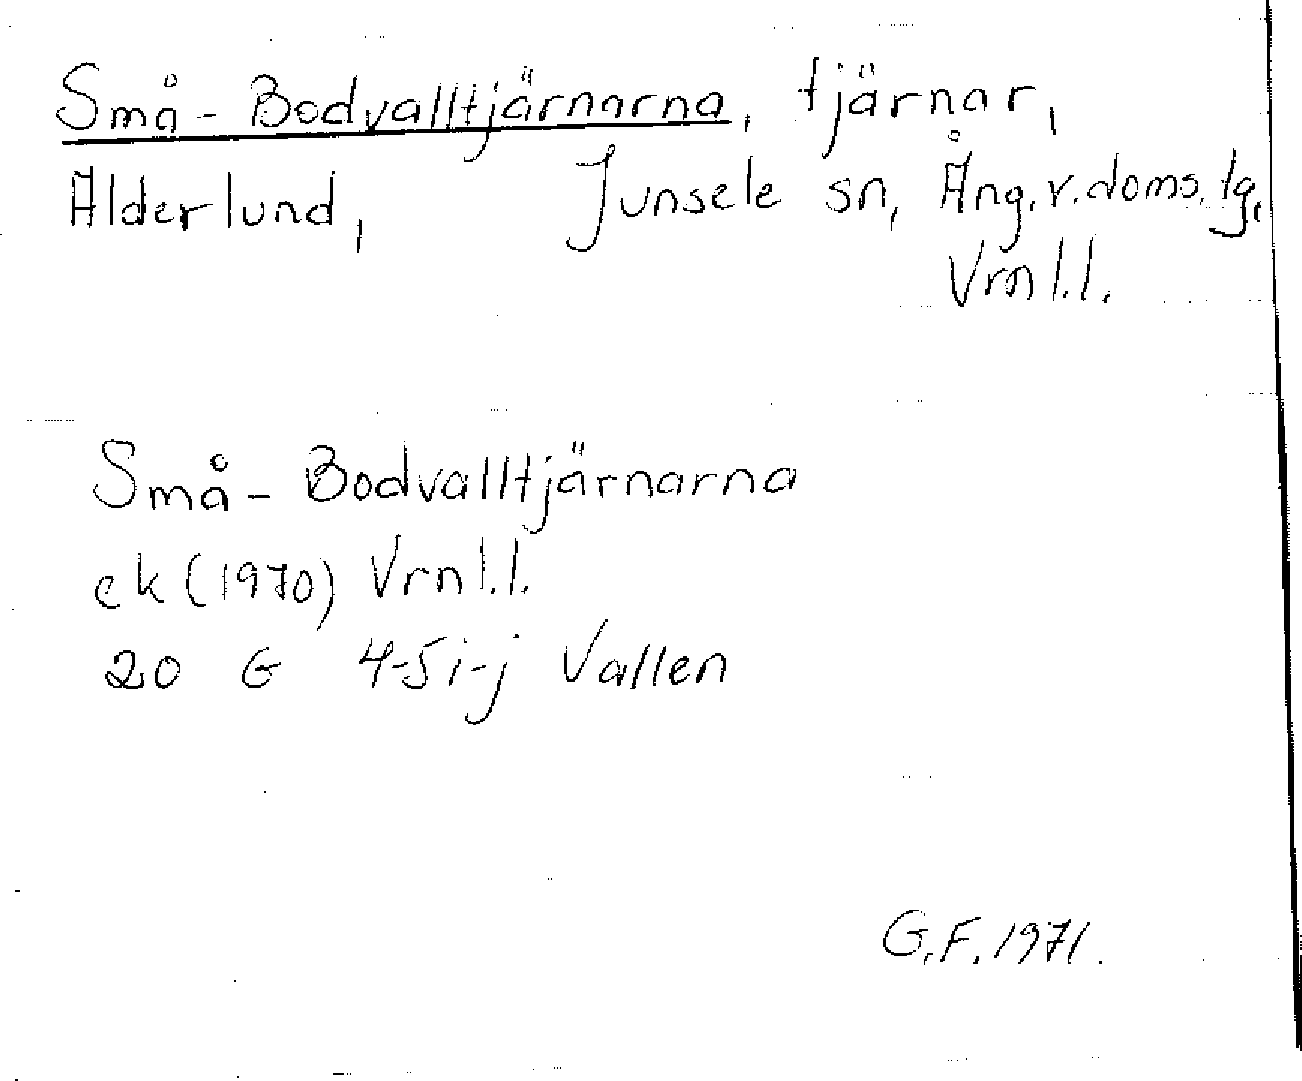 Små-Bodvalltjärnarna, tjärnar,
Alderlund, Junsele sn, Ång. v. doms. lg.
Vrnl.l.
Små-Bodvalltjärnarna
ek (1970) Vrnl.l.
20 G 4-5 i-j Vallen
G.F. 1971.